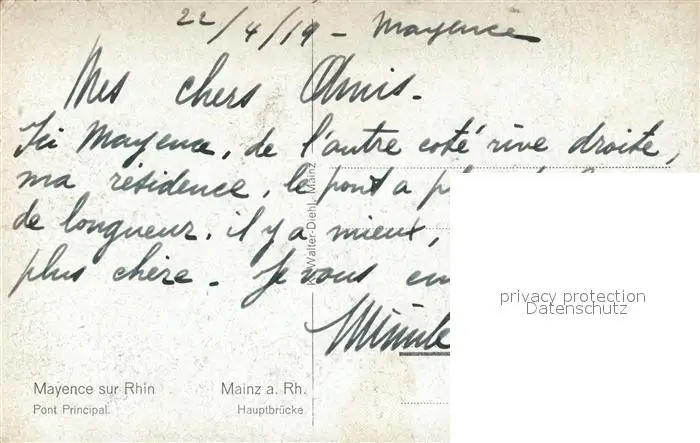 22/4/19 - Mayence
Mes chers Amis.
Ici Mayence, de l'autre coté rive droite,
ma résidence, le pont a
de longueur, il y a mieux,
plus chère. Je vous
Walter-Diehl, Mainz
privacy protection
Datenschutz
Mayence sur Rhin
Pont Principal.
Mainz a. Rh.
Hauptbrücke